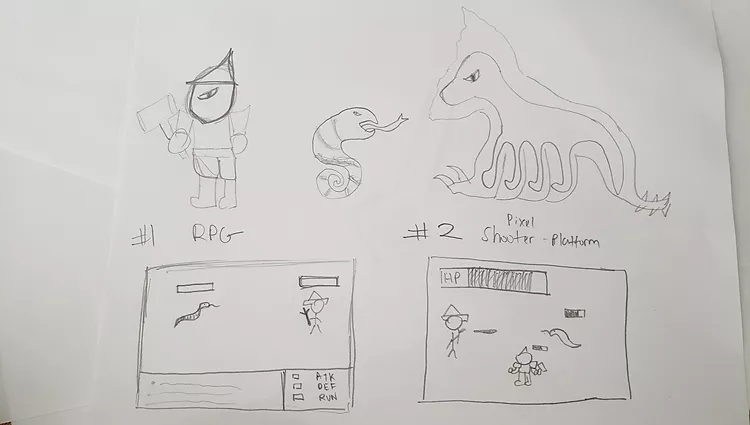 #1 RPG
#2 Pixel
Shooter - Platform
ATK
DEF
RUN
HP